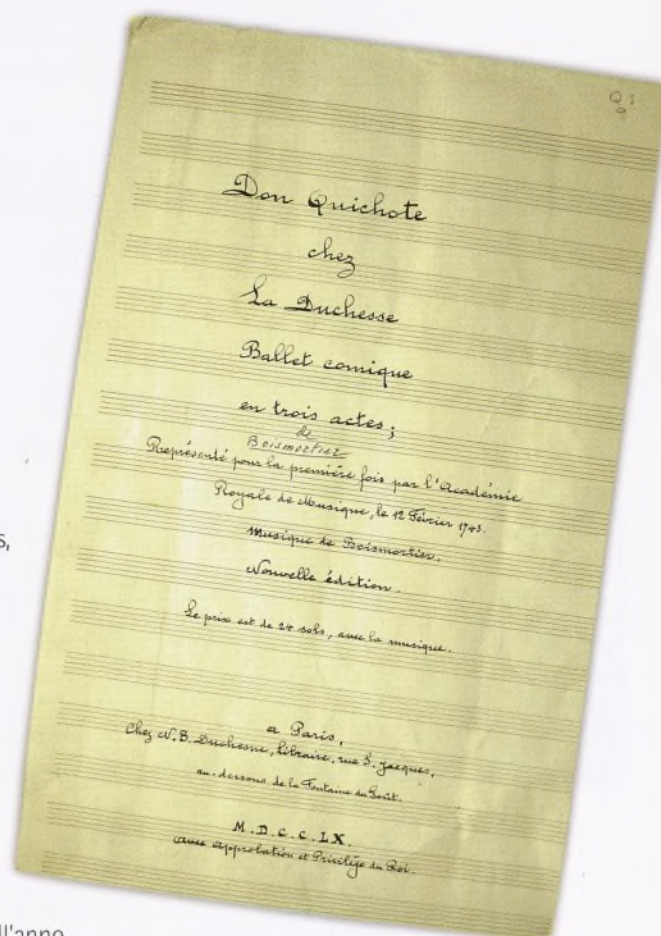 Q 1
Don Quichote
chez
La Duchesse
Ballet comique
en trois actes;
de
Boismortier
Représenté pour la première fois par l'Académie
Royale de Musique, le 12 Février 1743.
Musique de Boismortier.
Nouvelle édition.
Le prix est de 24 sols, avec la musique.
a Paris,
Chez N. B. Duchesne, libraire, rue S. Jacques,
au-dessous de la Fontaine du Goût.
M.D.C.C.LX.
avec approbation et Privilège du Roi.
s,
ll'anno